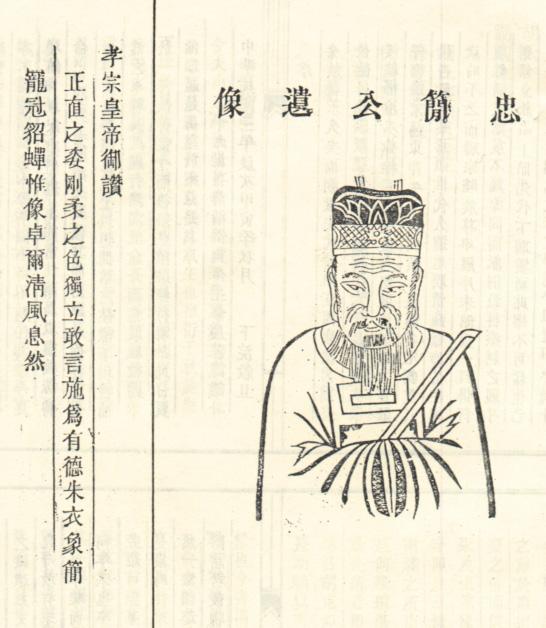 忠簡公遺像
孝宗皇帝御讚
正直之姿剛柔之色獨立敢言施爲有德朱衣象簡
籠冠貂蟬惟像卓爾清風息然